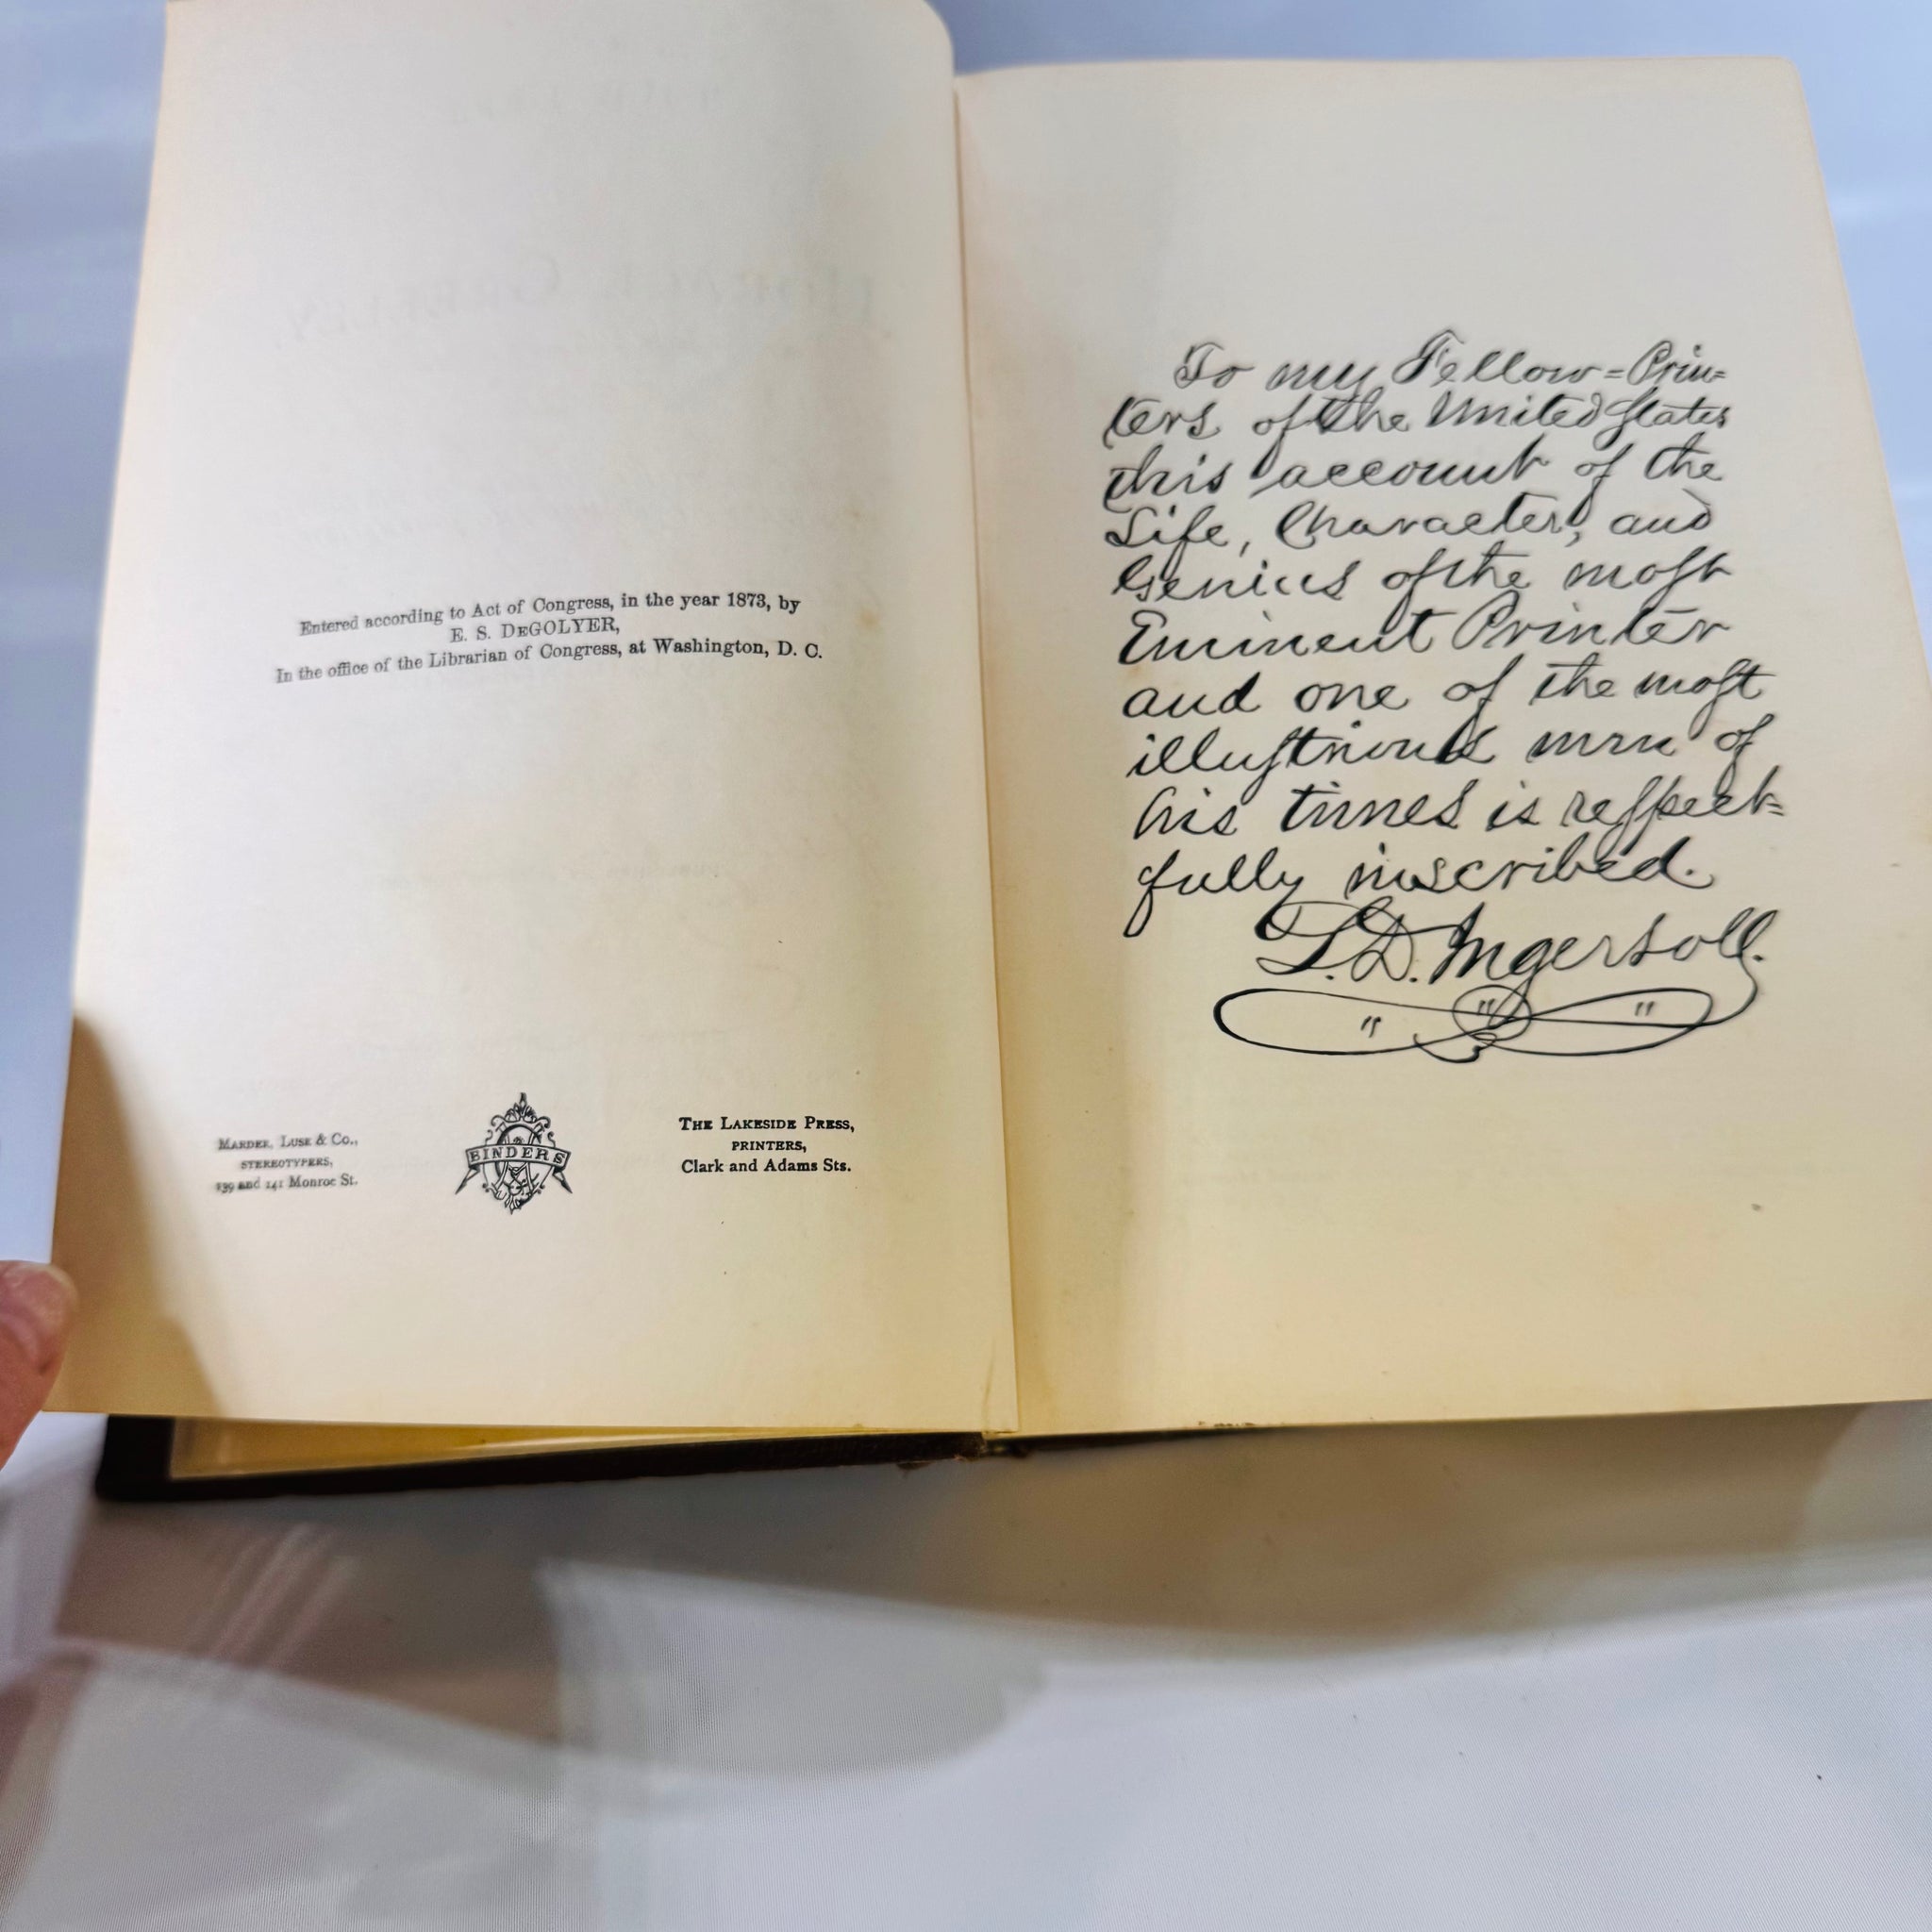 Entered according to Act of Congress, in the year 1873, by
E. S. DEGOLYER,
In the office of the Librarian of Congress, at Washington, D. C.
MARDER, LUSE & CO.,
STEREOTYPERS,
139 and 141 Monroe St.
BINDERS
THE LAKESIDE PRESS,
PRINTERS,
Clark and Adams Sts.
To my Fellow=Prin=
ters of the United States
this account of the
Life, Character, and
Genius of the most
Eminent Printer
and one of the most
illustrious men of
his times is respect=
fully inscribed.
L. D. Ingersoll.